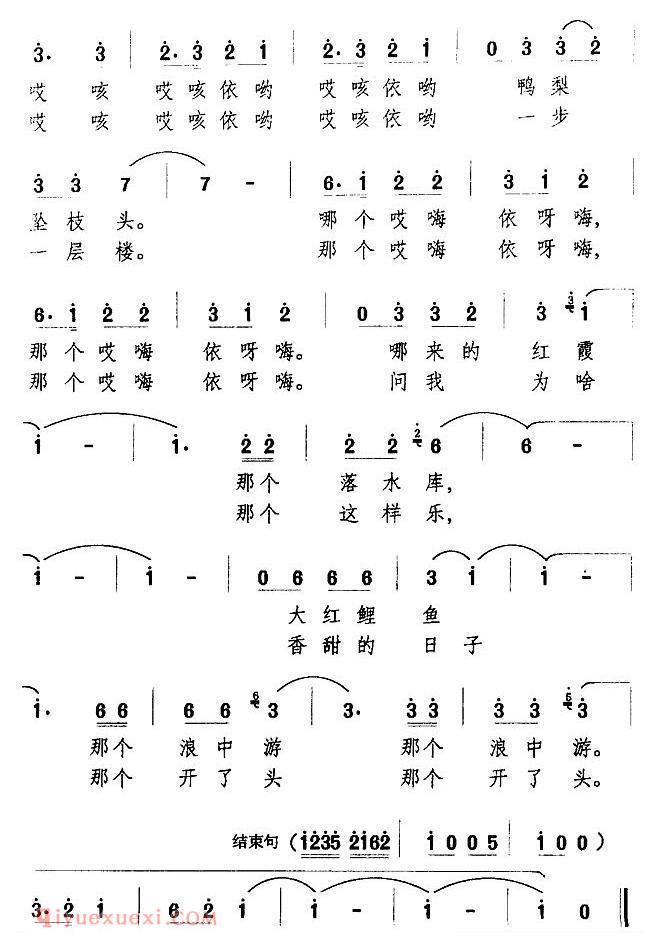 3. 3 | 2. 3 2 1 | 2. 3 2 1 | 0 3 3 2
哎 咳 哎咳依哟 哎咳依哟 鸭梨
哎 咳 哎咳依哟 哎咳依哟 一步
3 3 7 | 7 - | 6. 1 2 2 | 3 1 2
坠枝头。 哪个哎嗨 依呀嗨,
一层楼。 那个哎嗨 依呀嗨,
6. 1 2 2 | 3 1 2 | 0 3 3 2 | 3 3 1
那个哎嗨 依呀嗨。 哪来的 红霞
那个哎嗨 依呀嗨。 问我 为啥
1 - | 1. 2 2 | 2 2 2 6 | 6 -
那个 落水库,
那个 这样乐,
1 - | 1 - | 0 6 6 6 | 3 1 | 1 -
大红鲤 鱼
香甜的 日子
1. 6 6 | 6 6 6 3 | 3. 3 3 | 3 3 6 3
那个 浪中游 那个 浪中游。
那个 开了头 那个 开了头。
结束句 (1235 2162 | 1 0 0 5 | 1 0 0)
3. 2 1 | 6 2 1 | 1 - | 1 - | 1 0
qiyuexuexi.COM